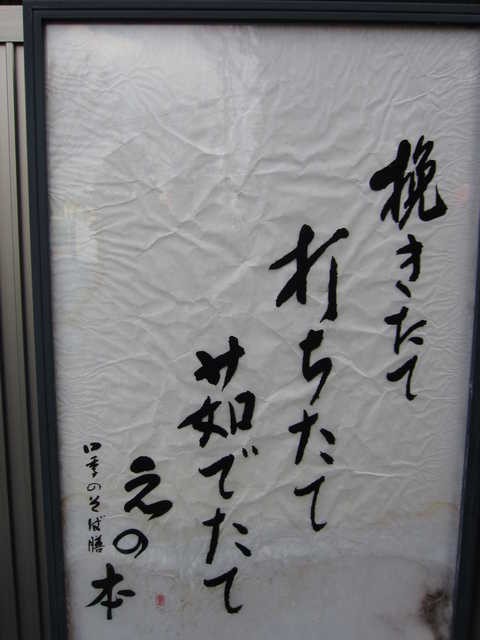 挽きたて
打ちたて
茹でたて
えの本
四季のそば膳